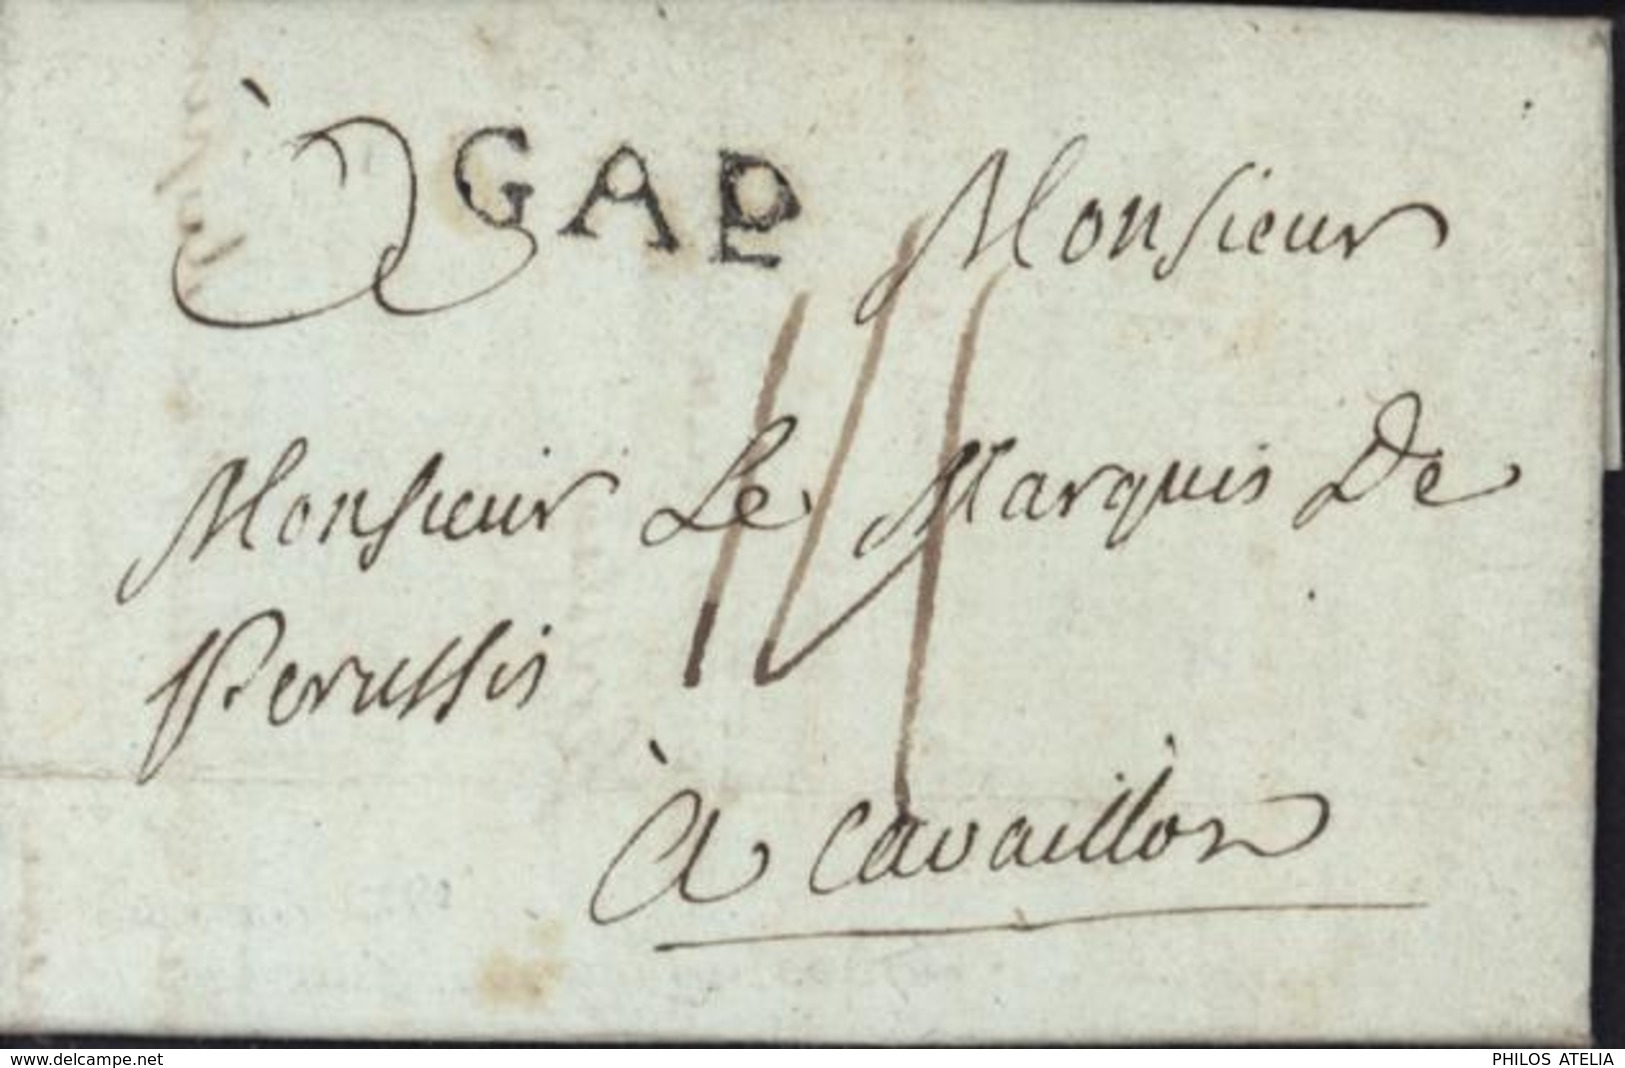 À GAP Monsieur
14
Monsieur Le Marquis De
Perussis
à Cavaillon
www.delcampe.net
PHILOS ATELIA